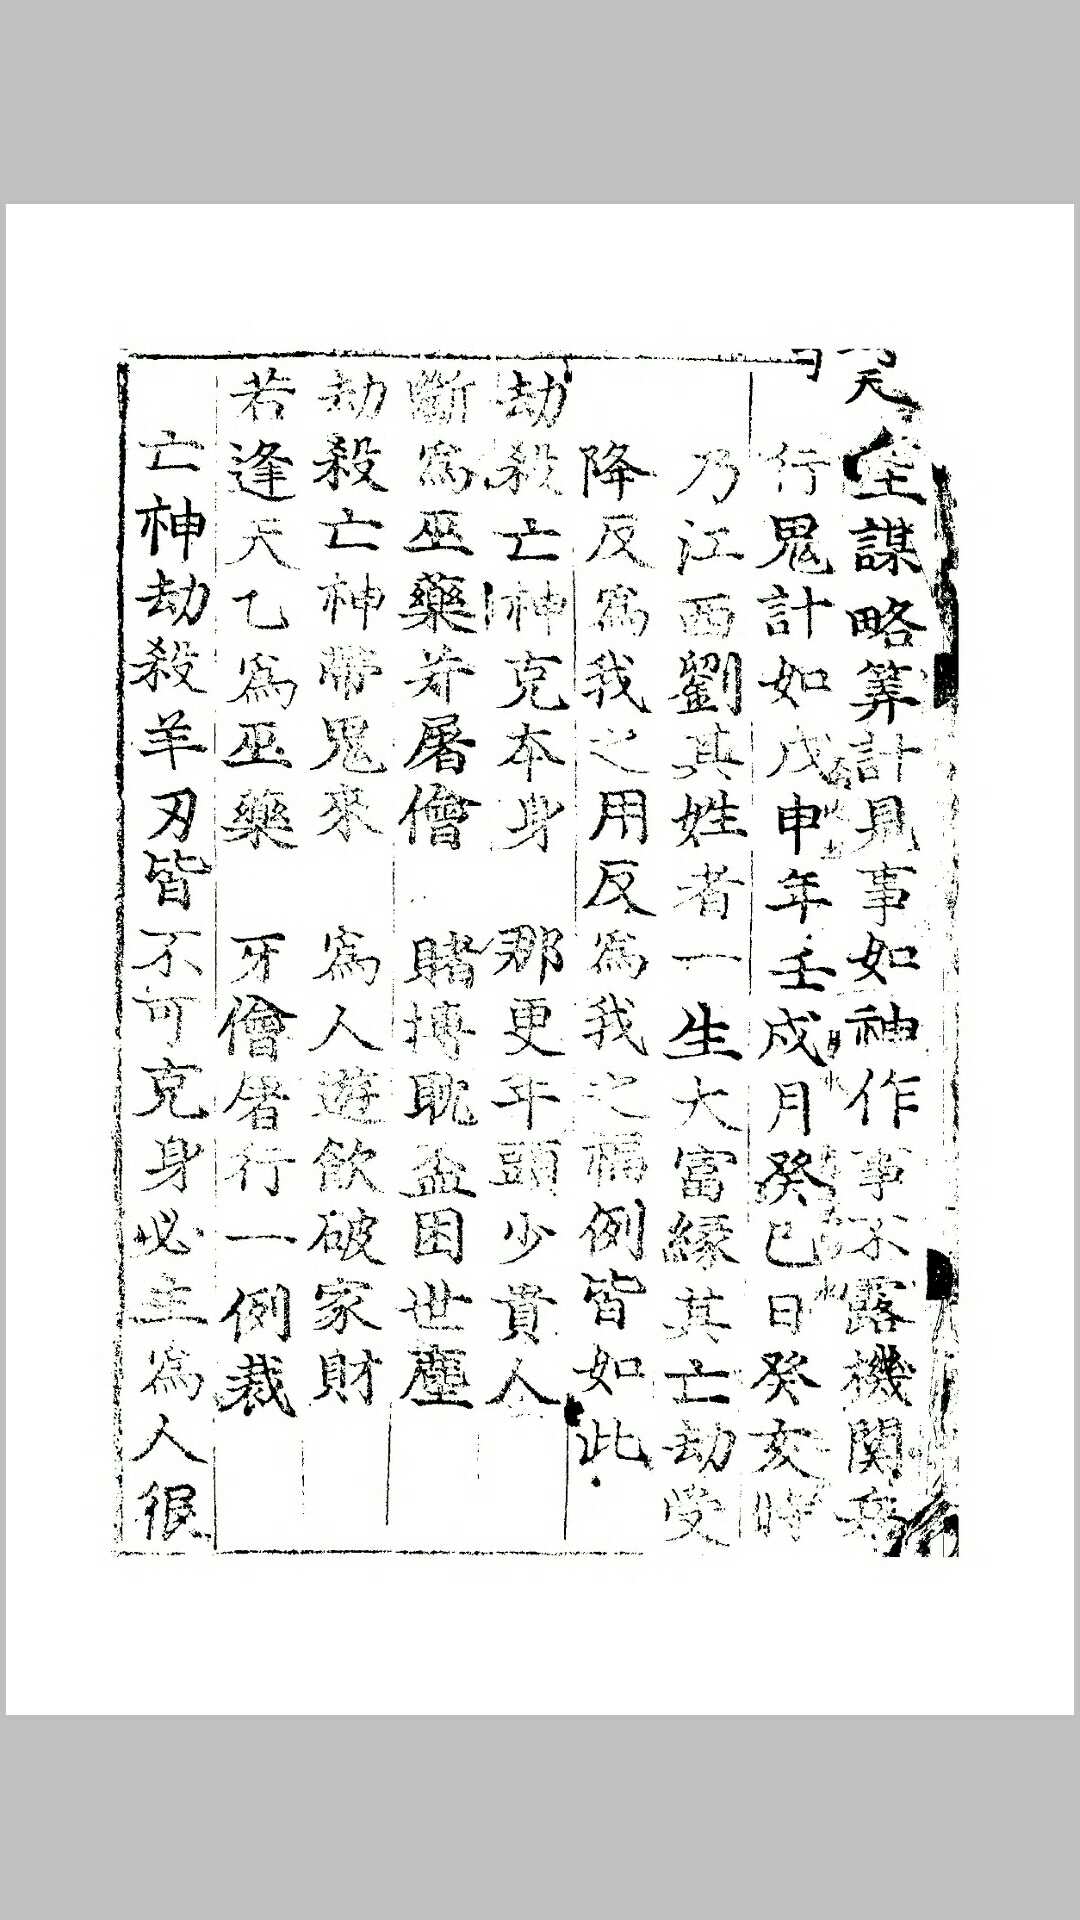 天
全謀略筭計見事如神作事不露機関
行鬼計如戊申年壬戌月癸巳日癸亥時
乃江西劉其姓者一生大富縁其亡劫受
降反爲我之用反爲我之福例皆如此
劫殺亡神克本身　那更年頭少貴人
斷爲巫藥并屠儈　賭博耽盃困世塵
劫殺亡神帶鬼來　爲人遊飲破家財
若逢天乙爲巫藥　牙儈屠行一例裁
亡神劫殺羊刃皆不可克身必主爲人很